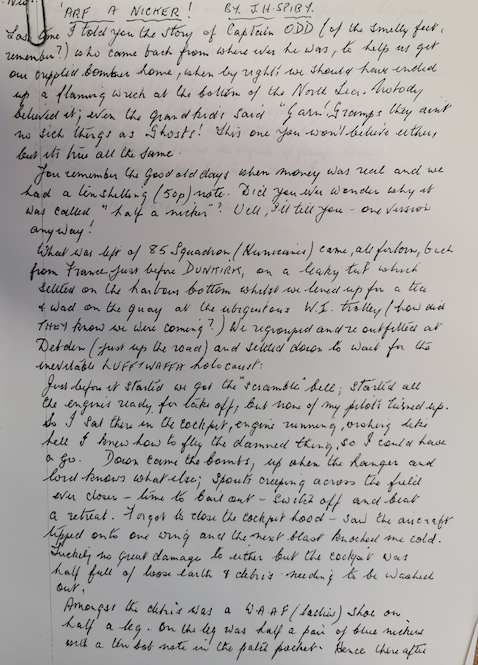 'ARF A NICKER! BY. J.H-SPIBY.
Last time I told you the story of Captain ODD (of the smelly feet,
remember?) who came back from where ever he was, to help us get
our crippled bomber home, when by rights we should have ended
up a flaming wreck at the bottom of the North Sea. Nobody
believed it; even the grandkids said "Garn! Gramps they ain't
no sich things as Ghosts! This one you won't believe either,
but its true all the same.
You remember the good old days when money was real and we
had a ten shilling (50p) note. Did you ever wonder why it
was called "half a nicker"? Well, I'll tell you - one version
anyway!
What was left of 85 Squadron (Hurricanes) came, all forlorn, back
from France just before DUNKIRK, on a leaky tub which
settled on the harbour bottom whilst we lined up for a tea
& wad on the quay at the ubiquitous W.I. trolley (how did
THEY know we were coming?) We regrouped and re outfitted at
Debden (just up the road) and settled down to wait for the
inevitable LUFTWAFFE holocaust:
Just before it started we got the "scramble" bell; started all
the engines ready for take off, but none of my pilots turned up.
So I sat there in the cockpit, engine running, wishing like
hell I knew how to fly the damned thing, so I could have
a go. Down came the bombs, up when the hanger and
lord knows what else; spouts creeping across the field
ever closer - time to bail out - switch off and beat
a retreat. Forgot to close the cockpit hood - saw the aircraft
tipped onto one wing and the next blast knocked me cold.
Luckily no great damage to either but the cockpit was
half full of loose earth & debris needing to be washed
out.
Amongst the debris was a W.A.A.F (ladies) shoe on
half a leg. On the leg was half a pair of blue nickers
with a ten bob note in the patch pocket. Hence there after